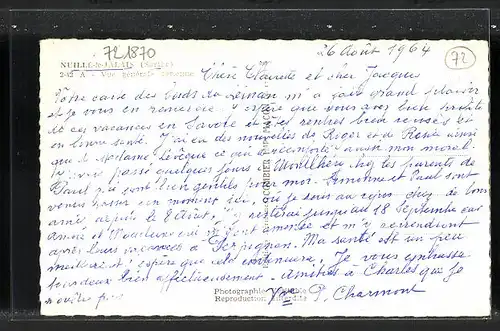 72 1870
26 Août 1964
72
NUILLÉ-s-JALAIS (Sarthe)
2-42 A - Vue générale aérienne
Chère Claurette et cher Jacques
Votre carte des bords du Léman m'a fait grand plaisir
et je vous en remercie. J'espère que vous avez bien profité
de ces vacances en Savoie et êtes rentrés bien reposés et
en bonne santé. J'ai eu des nouvelles de Roger et de Renée ainsi
que de Madame Levêque ce qui a réconforté aussi mon moral.
J'ai passé quelques jours à Montlhéry chez les parents de
Paul qui sont bien gentils pour moi. Simonne et Paul sont
venus passer un moment ici, où je suis au repos chez de bons
amis depuis le 8 août. J'y resterai jusqu'au 18 Septembre car
Simone et Paul m'y ont amenée et m'y reprendront
après leurs vacances à Perpignan. Ma santé est un peu
meilleure et j'espère que cela continuera. Je vous embrasse
tous deux bien affectueusement. Amitiés à Charles que je
n'oublie pas.
P. Charmont
Photographie véritable
Reproduction interdite
COMBIER